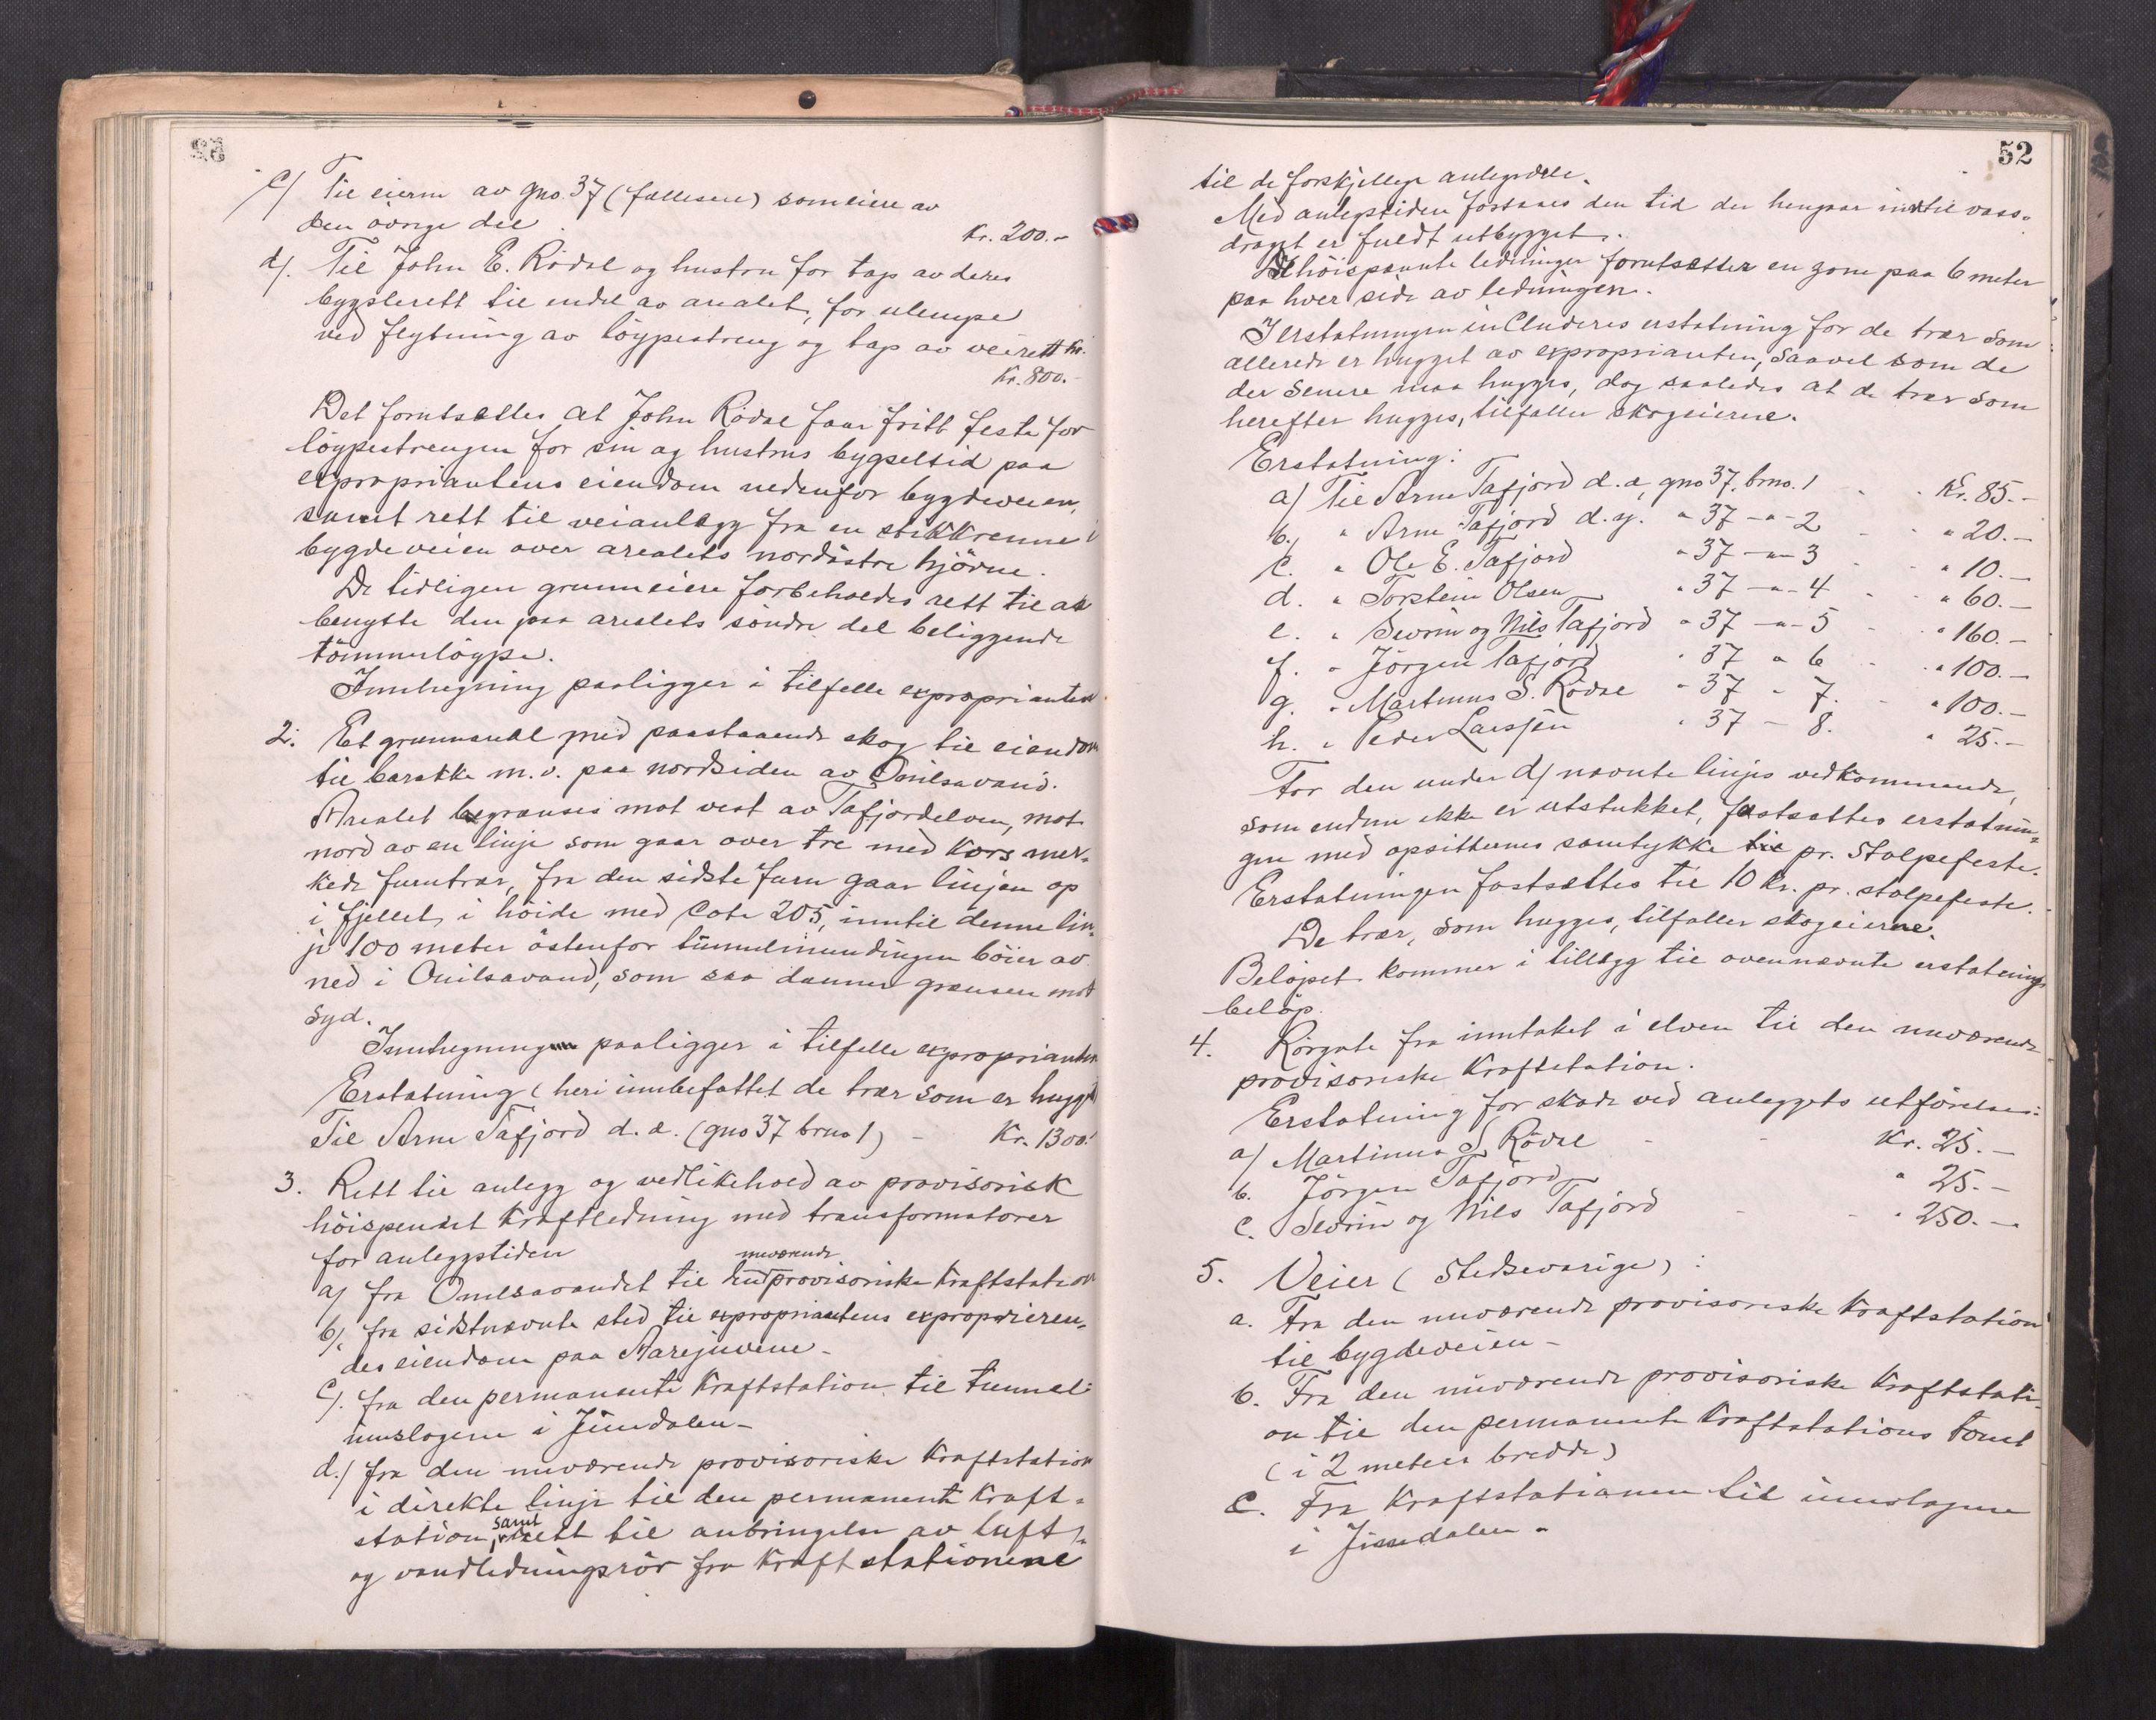 c/ Til eierne av gno. 37 (fællesere) som eiere av
den övrige del . Kr. 200.-
d/. Til John E. Rödal og hustru for tap av deres
bygslerett til endel av arealet, for ulempe
ved flytning av löypestreng og tap av veirett Kr.
Kr. 800.-
Det forutsættes at John Rödal faar fritt feste for
löypestrengen for sin og hustrus bygseltid paa
expropriantens eiendom nedenfor bygdeveien,
samt rett til veianlægg fra en stikkrenne i
bygdeveien over arealets nordöstre hjörne.
De tidligere grunneiere forbeholdes rett til at
benytte den paa arealets söndre del beliggende
tömmerlöype.
Innhegning paaligger i tilfelle exproprianten
2. Et grunnareal med paastaaende skog til eiendom
til barakke m.v. paa nordsiden av Onilsavand.
Arealet begrænses mot vest av Tafjordelven, mot
nord av en linje som gaar over tre med kors mer-
kede furutrær, fra den sidste furu gaar linjen op
i fjellet i höide med Cote 205, inntil denne lin-
je 100 meter östenfor tunnelmundingen böier av
ned i Onilsavand, som saa danner grænsen mot
Syd.
Innhegning paaligger i tilfelle exproprianten
Erstatning (heri innbefattet de trær som er hugget)
Til Arne Tafjord d.æ. (gno 37 brno 1) - Kr. 1300.-
3. Rett til anlegg og vedlikehold av provisorisk
höispendt Kraftledning med transformatorer
for anleggstiden
nuværende
a) fra Onilsavandet til provisoriske Kraftstation
b). fra sidstnævnte sted til expropriantens exproprieren-
des eiendom paa Aarejuvene -
c). fra den permanente Kraftstation til tunnel-
innslagene i Jundalen -
d.) fra den nuværende provisoriske Kraftstation
i direkte linje til den permanente Kraft-
samt
station, rett til anbringelse av luft-
og vandledningsrör fra Kraftstationene
52
til de forskjellige anlegsdele.
Med anlegstiden forstaaes den tid der hengaar inntil vass-
draget er fuldt utbygget.
De höispænnte ledninger forutsætter en zone paa 6 meter
paa hver side av ledningen.
I erstatningen includeres erstatning for de trær som
allerede er hugget av exproprianten, saavel som de
der senere maa hugges, dog saaledes at de trær som
herefter hugges, tilfaller skogeierne.
Erstatning:
a) Til Arne Tafjord d.æ, gno 37. brno. 1 - - Kr. 85.-
b.) " Arne Tafjord d.y. " 37 -"- 2 - - " 20.-
c. " Ole E. Tafjord " 37 -"- 3 - - " 10.-
d. " Torstein Olsen " 37 -"- 4 - - " 60.-
e. " Sevrin og Nils Tafjord " 37 -"- 5 - " 160.-
f. " Jörgen Tafjord " 37 " 6 - - " 100.-
g. " Martinus S. Rödal " 37 " 7. - " 100.-
h. " Peder Larssen " 37 - 8. " 25.-
For den under d) nævnte linjes vedkommende,
som endnu ikke er utstukket, fastsættes erstatnin-
gen med opsitternes samtykke til pr. Stolpefeste.
Erstatningen fastsættes til 10 kr. pr. stolpefeste.
De trær, som hugges, tilfaller skogeierne.
Belöpet kommer i tillægg til ovennævnte erstatnings-
belöp.
4. Rörgate fra inntaket i elven til den nuværende
provisoriske Kraftstation.
Erstatning for skade ved anleggets utförelse:
a) Martinus S. Rödal - - Kr. 25.-
b. Jörgen Tafjord " 25.-
c. Sevrin og Nils Tafjord - - " 250.-
5. Veier (Stedsevarige) :
a. Fra den nuværende provisoriske Kraftstation
til bygdeveien -
b. Fra den nuværende provisoriske Kraftstati-
on til den permanente Kraftstations tomt
(i 2 meters bredde)
c. Fra Kraftstationen til innslagene
i Jundalen -